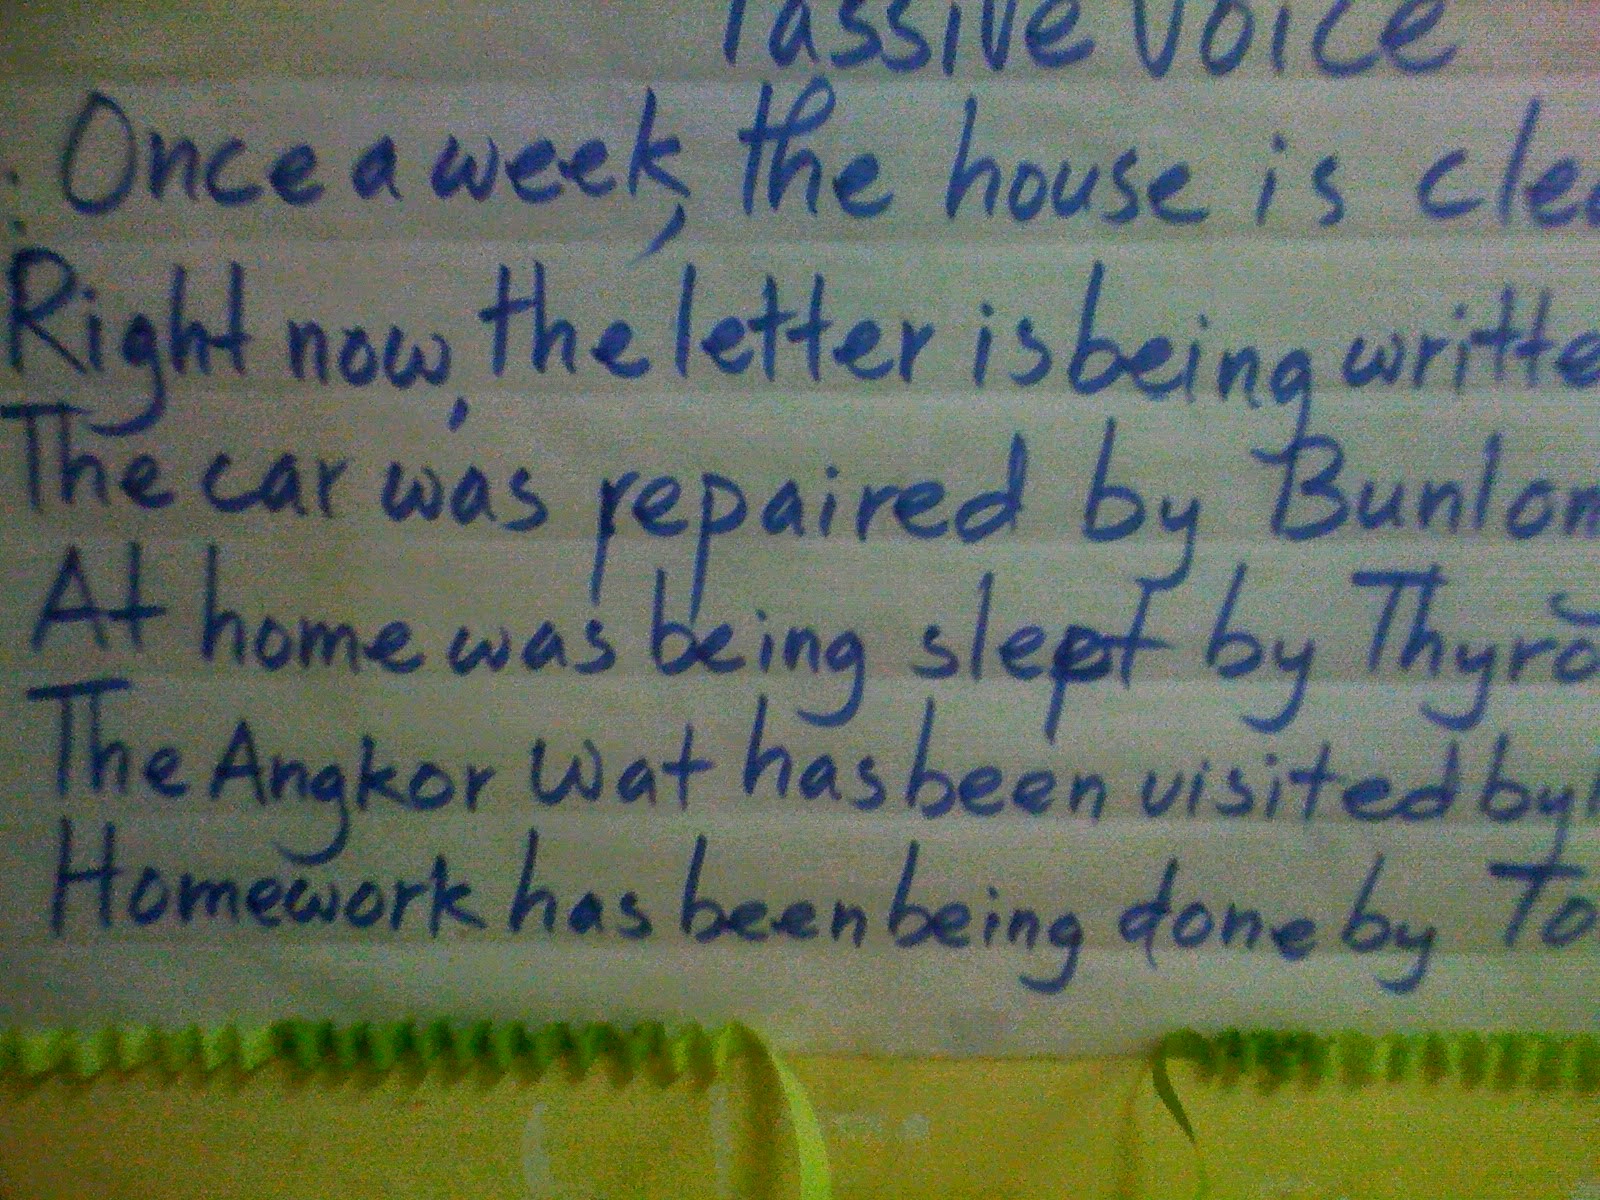 Passive Voice
Once a week, the house is clea
Right now, the letter is being writte
The car was repaired by Bunlon
At home was being slept by Thyro
The Angkor Wat has been visited by
Homework has been being done by To